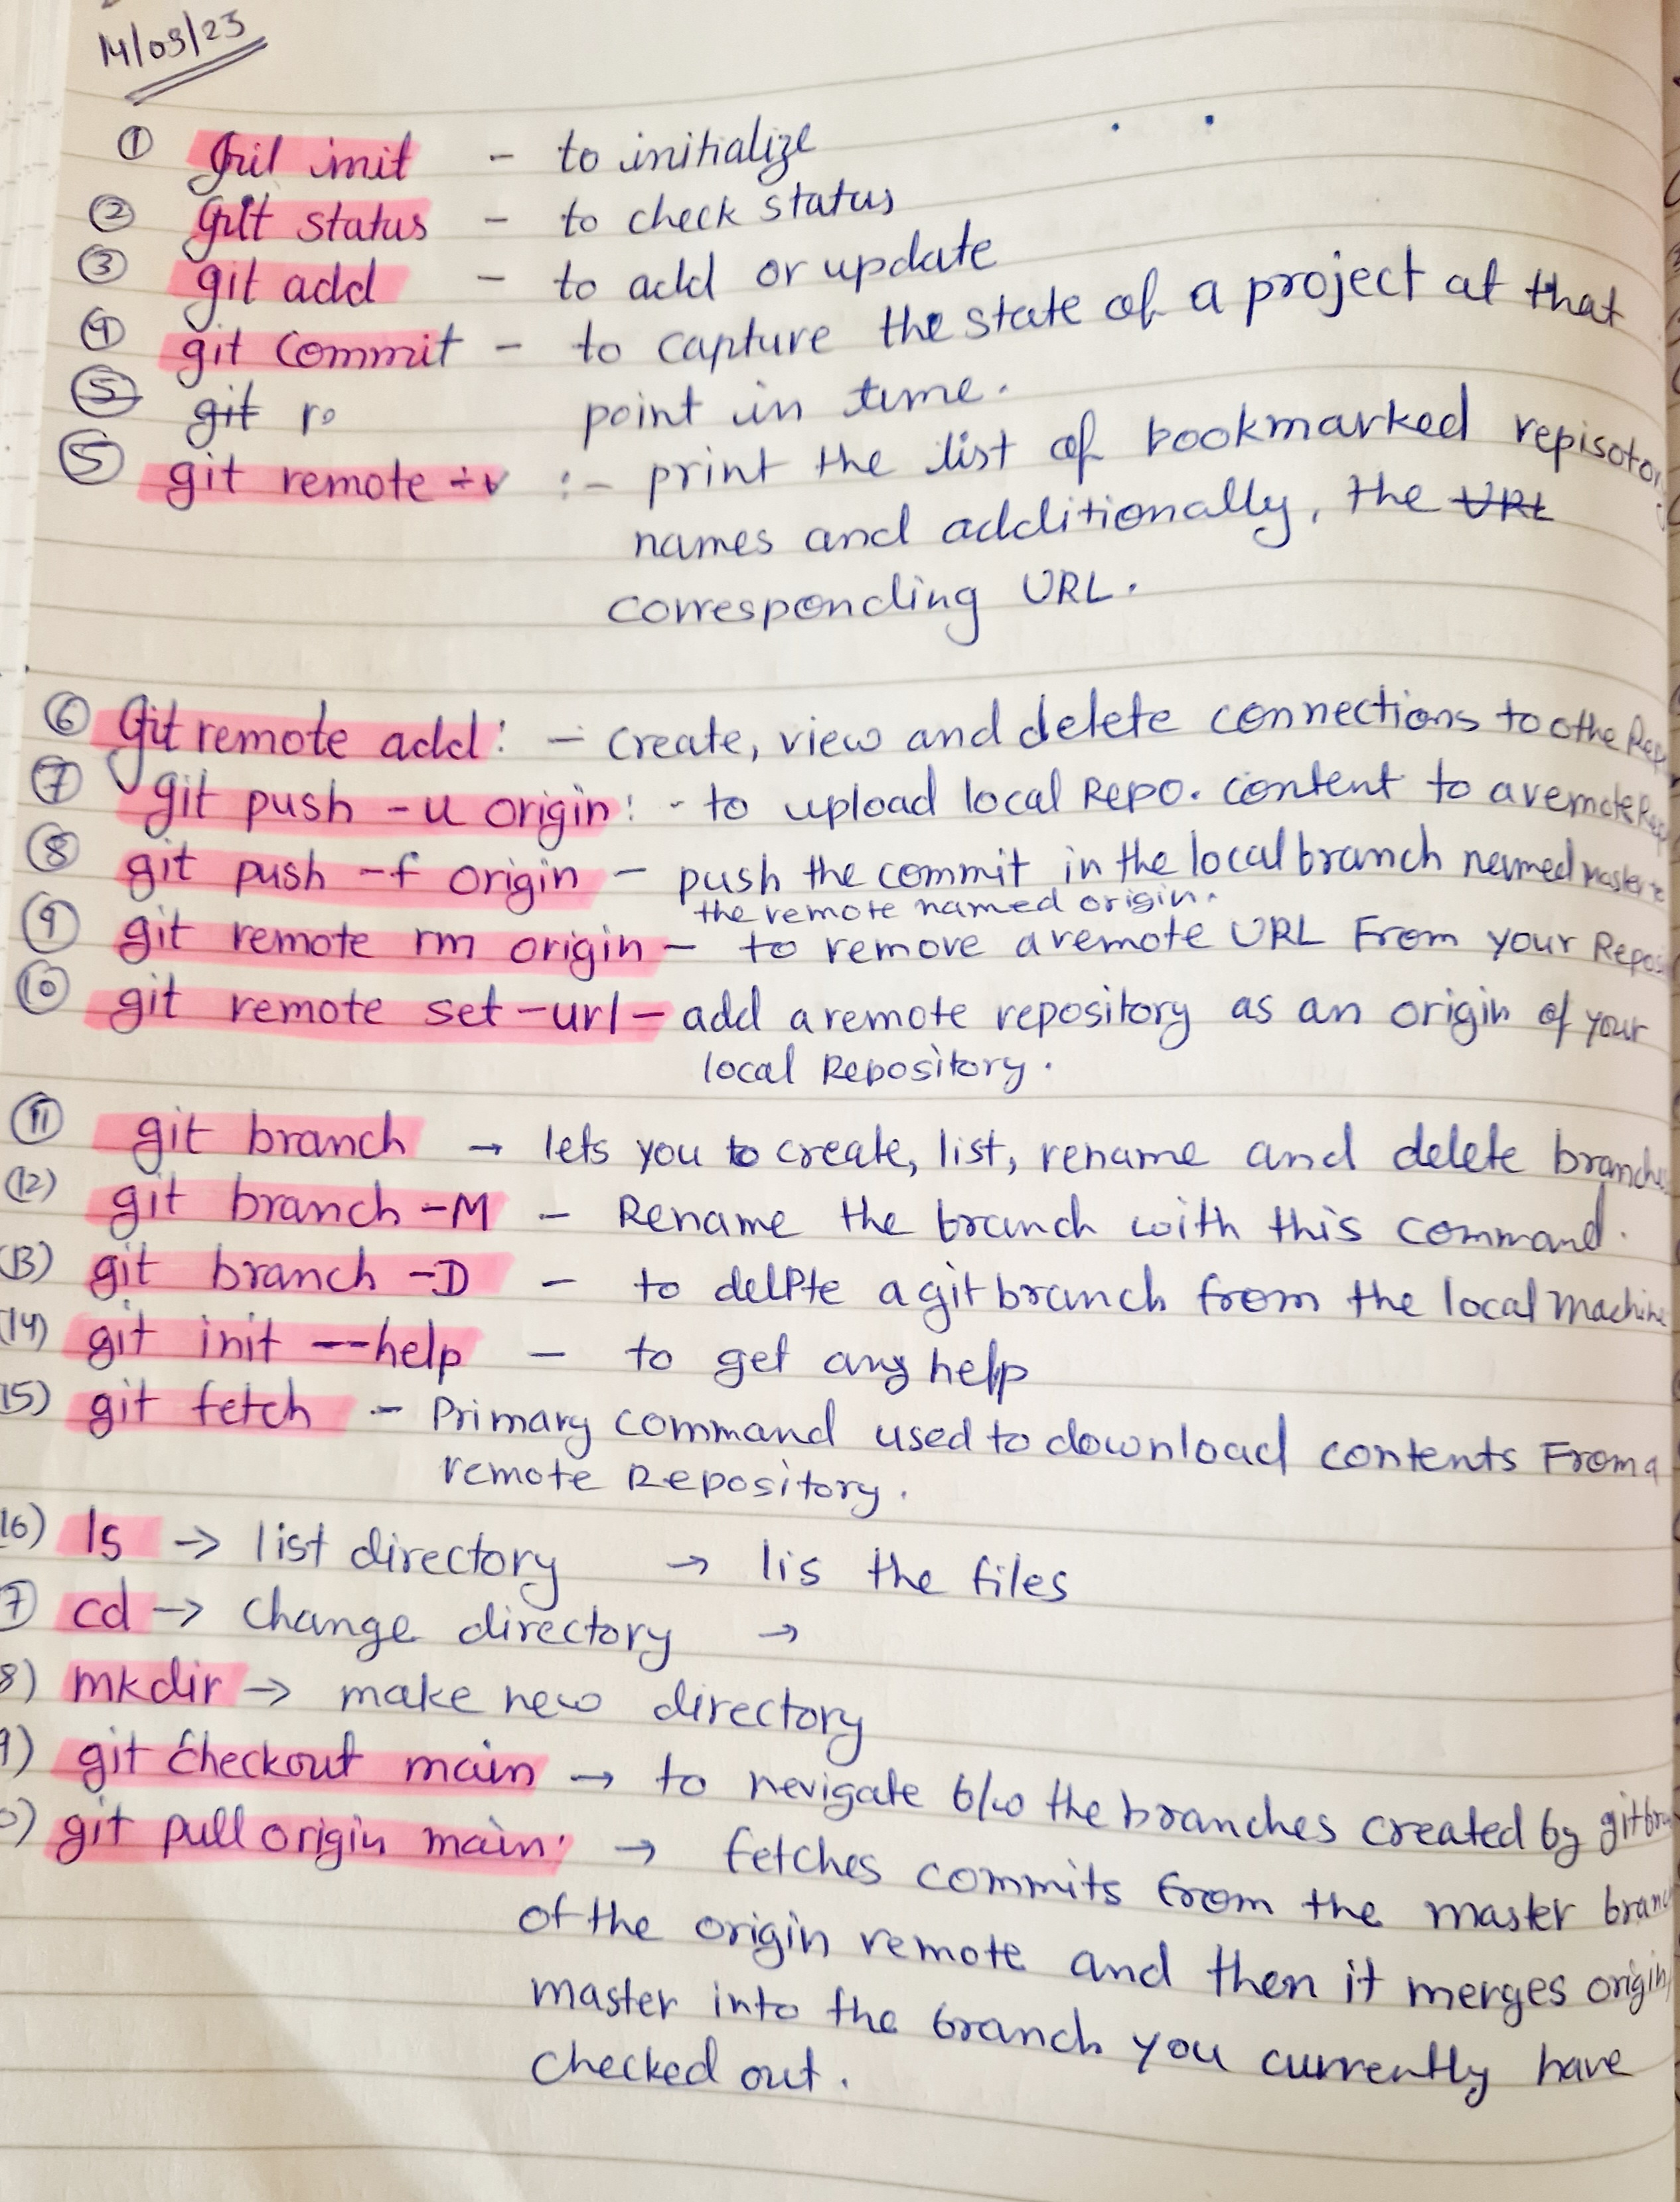 14/03/23
① Git init - to initialize
② Git status - to check status
③ git add - to add or update
④ git commit - to capture the state of a project at that
⑤ git ro point in time.
⑤ git remote -v :- print the list of bookmarked repisotory
names and additionally, the URL
corresponding URL.
⑥ Git remote add: - create, view and delete connections to othe Rep
⑦ git push -u origin: - to upload local Repo. content to a remote Rep
⑧ git push -f origin - push the commit in the local branch named master to
the remote named origin.
⑨ git remote rm origin - to remove a remote URL From your Repos
⑩ git remote set-url - add a remote repository as an origin of your
local Repository.
⑪ git branch → lets you to create, list, rename and delete branche
(12) git branch -M - Rename the branch with this command.
13) git branch -D - to delete a git branch from the local machine
14) git init --help - to get any help
15) git fetch - Primary command used to download contents From a
remote Repository.
16) ls → list directory → lis the files
7) cd → change directory →
8) mkdir → make new directory
9) git checkout main → to nevigate b/w the branches created by git bra
0) git pull origin main → fetches commits from the master branc
of the origin remote and then it merges origin/
master into the branch you currently have
checked out.